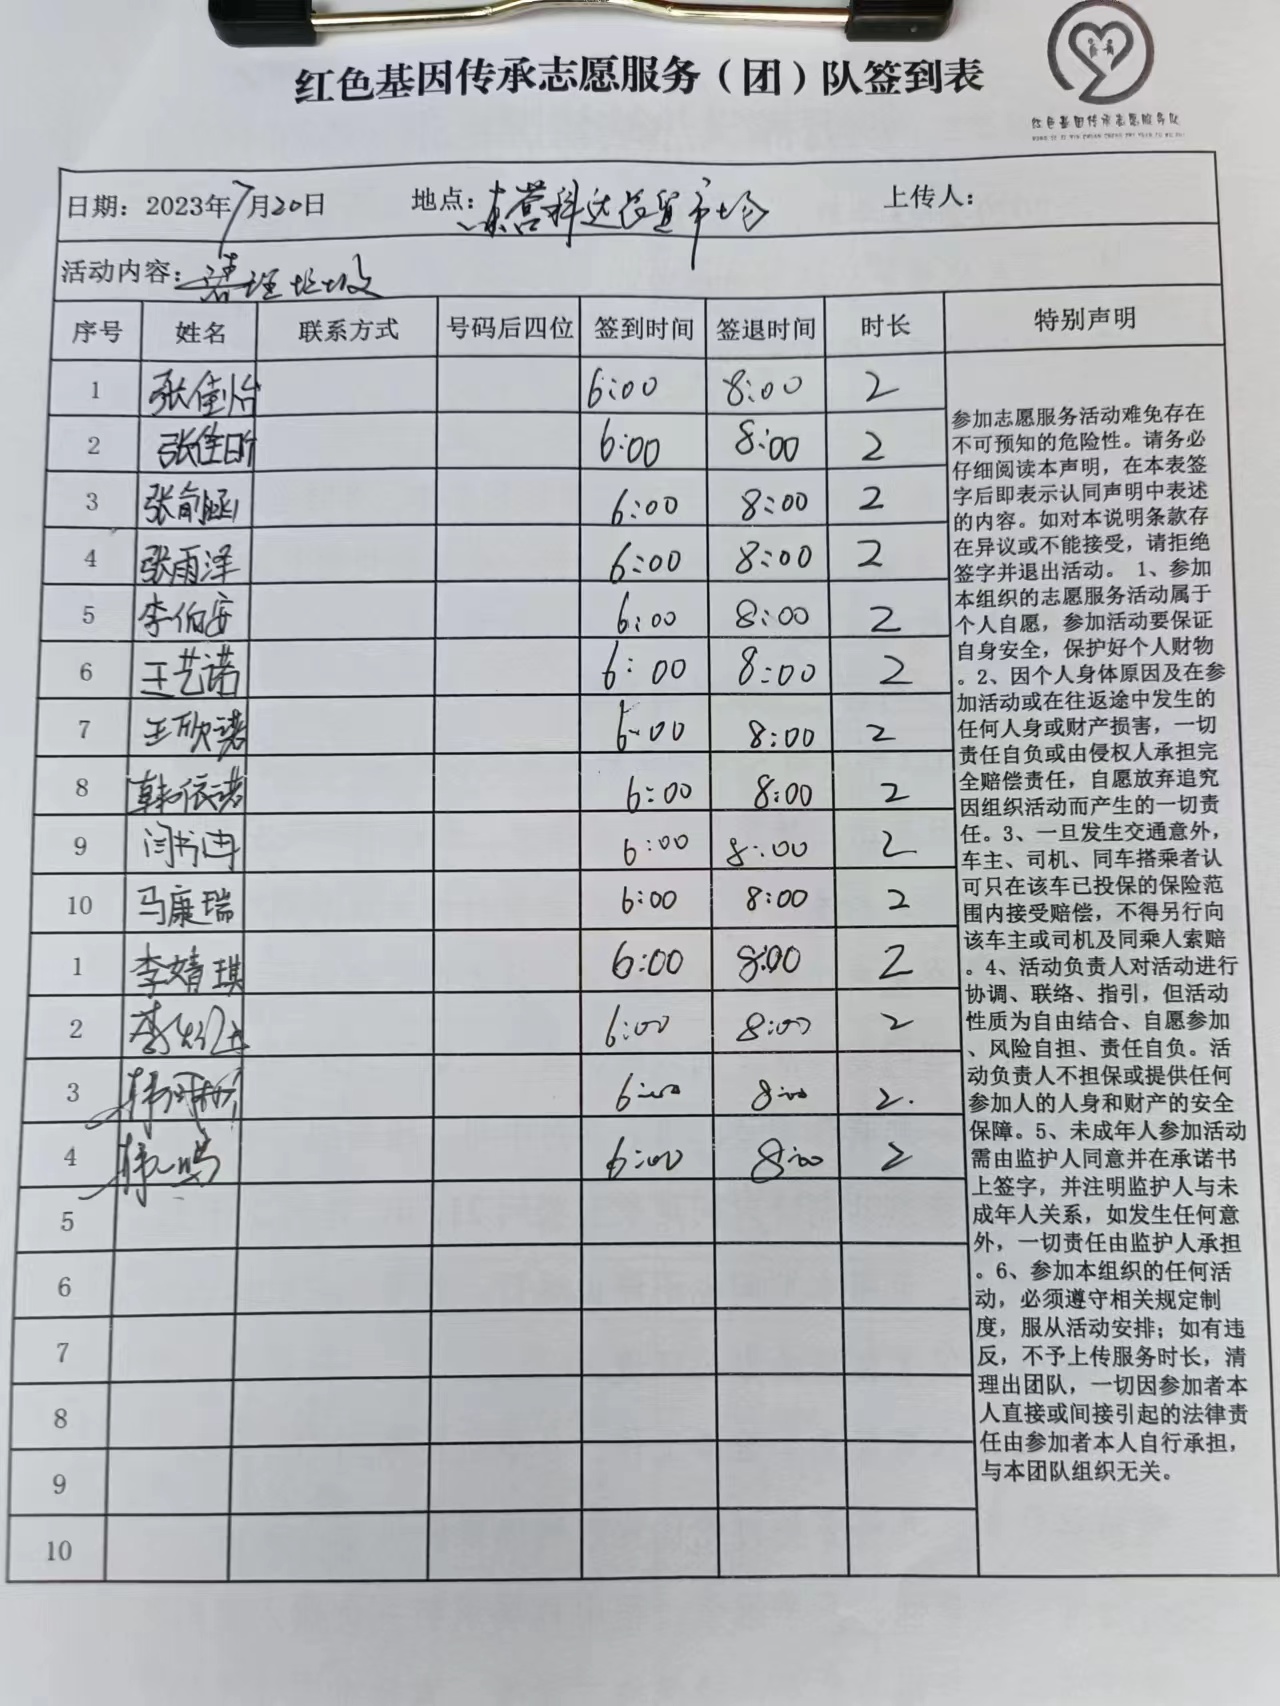 红色基因传承志愿服务（团）队签到表
红色基因传承志愿服务队
日期：2023年7月20日 地点：东营科达农贸市场 上传人：
活动内容：清理垃圾
序号 姓名 联系方式 号码后四位 签到时间 签退时间 时长 特别声明
1 张佳怡 6:00 8:00 2
2 张佳昕 6:00 8:00 2
3 张俞涵 6:00 8:00 2
4 张雨泽 6:00 8:00 2
5 李佰安 6:00 8:00 2
6 王艺诺 6:00 8:00 2
7 王欣诺 6:00 8:00 2
8 韩依诺 6:00 8:00 2
9 闫书冉 6:00 8:00 2
10 马康瑞 6:00 8:00 2
1 李婧琪 6:00 8:00 2
2 李 6:00 8:00 2
3 6:00 8:00 2.
4 6:00 8:00 2
5
6
7
8
9
10
参加志愿服务活动难免存在
不可预知的危险性。请务必
仔细阅读本声明，在本表签
字后即表示认同声明中表述
的内容。如对本说明条款存
在异议或不能接受，请拒绝
签字并退出活动。 1、参加
本组织的志愿服务活动属于
个人自愿，参加活动要保证
自身安全，保护好个人财物
。2、因个人身体原因及在参
加活动或在往返途中发生的
任何人身或财产损害，一切
责任自负或由侵权人承担完
全赔偿责任，自愿放弃追究
因组织活动而产生的一切责
任。3、一旦发生交通意外，
车主、司机、同车搭乘者认
可只在该车已投保的保险范
围内接受赔偿，不得另行向
该车主或司机及同乘人索赔
。4、活动负责人对活动进行
协调、联络、指引，但活动
性质为自由结合、自愿参加
、风险自担、责任自负。活
动负责人不担保或提供任何
参加人的人身和财产的安全
保障。5、未成年人参加活动
需由监护人同意并在承诺书
上签字，并注明监护人与未
成年人关系，如发生任何意
外，一切责任由监护人承担
。6、参加本组织的任何活
动，必须遵守相关规定制
度，服从活动安排；如有违
反，不予上传服务时长，清
理出团队，一切因参加者本
人直接或间接引起的法律责
任由参加者本人自行承担，
与本团队组织无关。